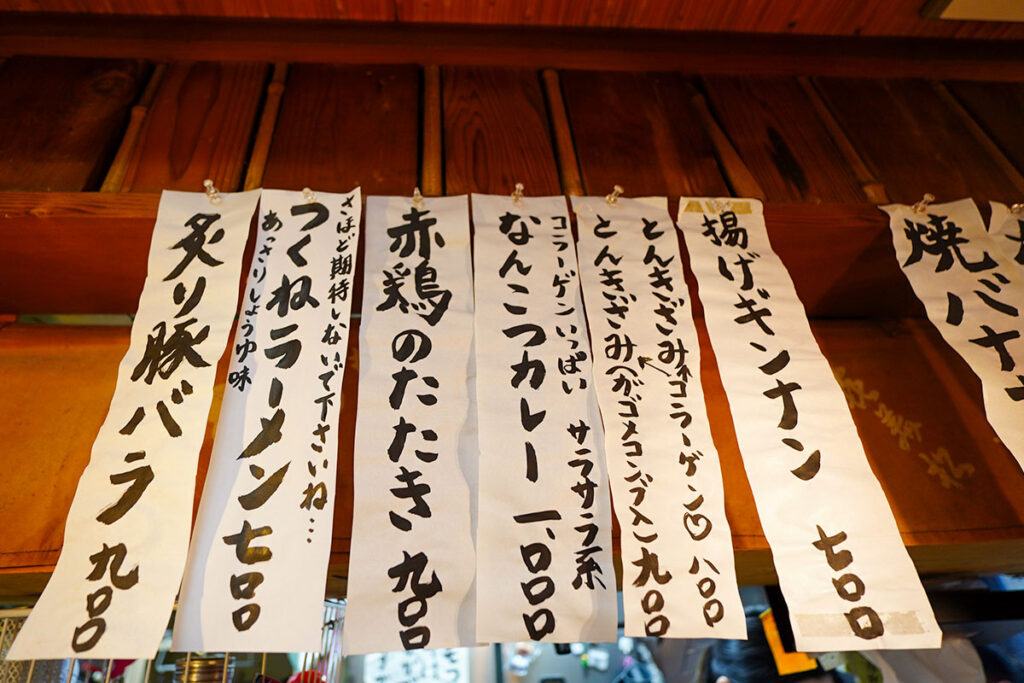 揚げギンナン 七〇〇
とんきざみ←コラーゲン♡ 八〇〇
とんきざみ(ガゴメコンブ入) 九〇〇
コラーゲンいっぱい サラサラ系
なんこつカレー 一、〇〇〇
赤鶏のたたき 九〇〇
さほど期待しないで下さいね…
つくねラーメン 七〇〇
あっさりしょうゆ味
炙り豚バラ 九〇〇